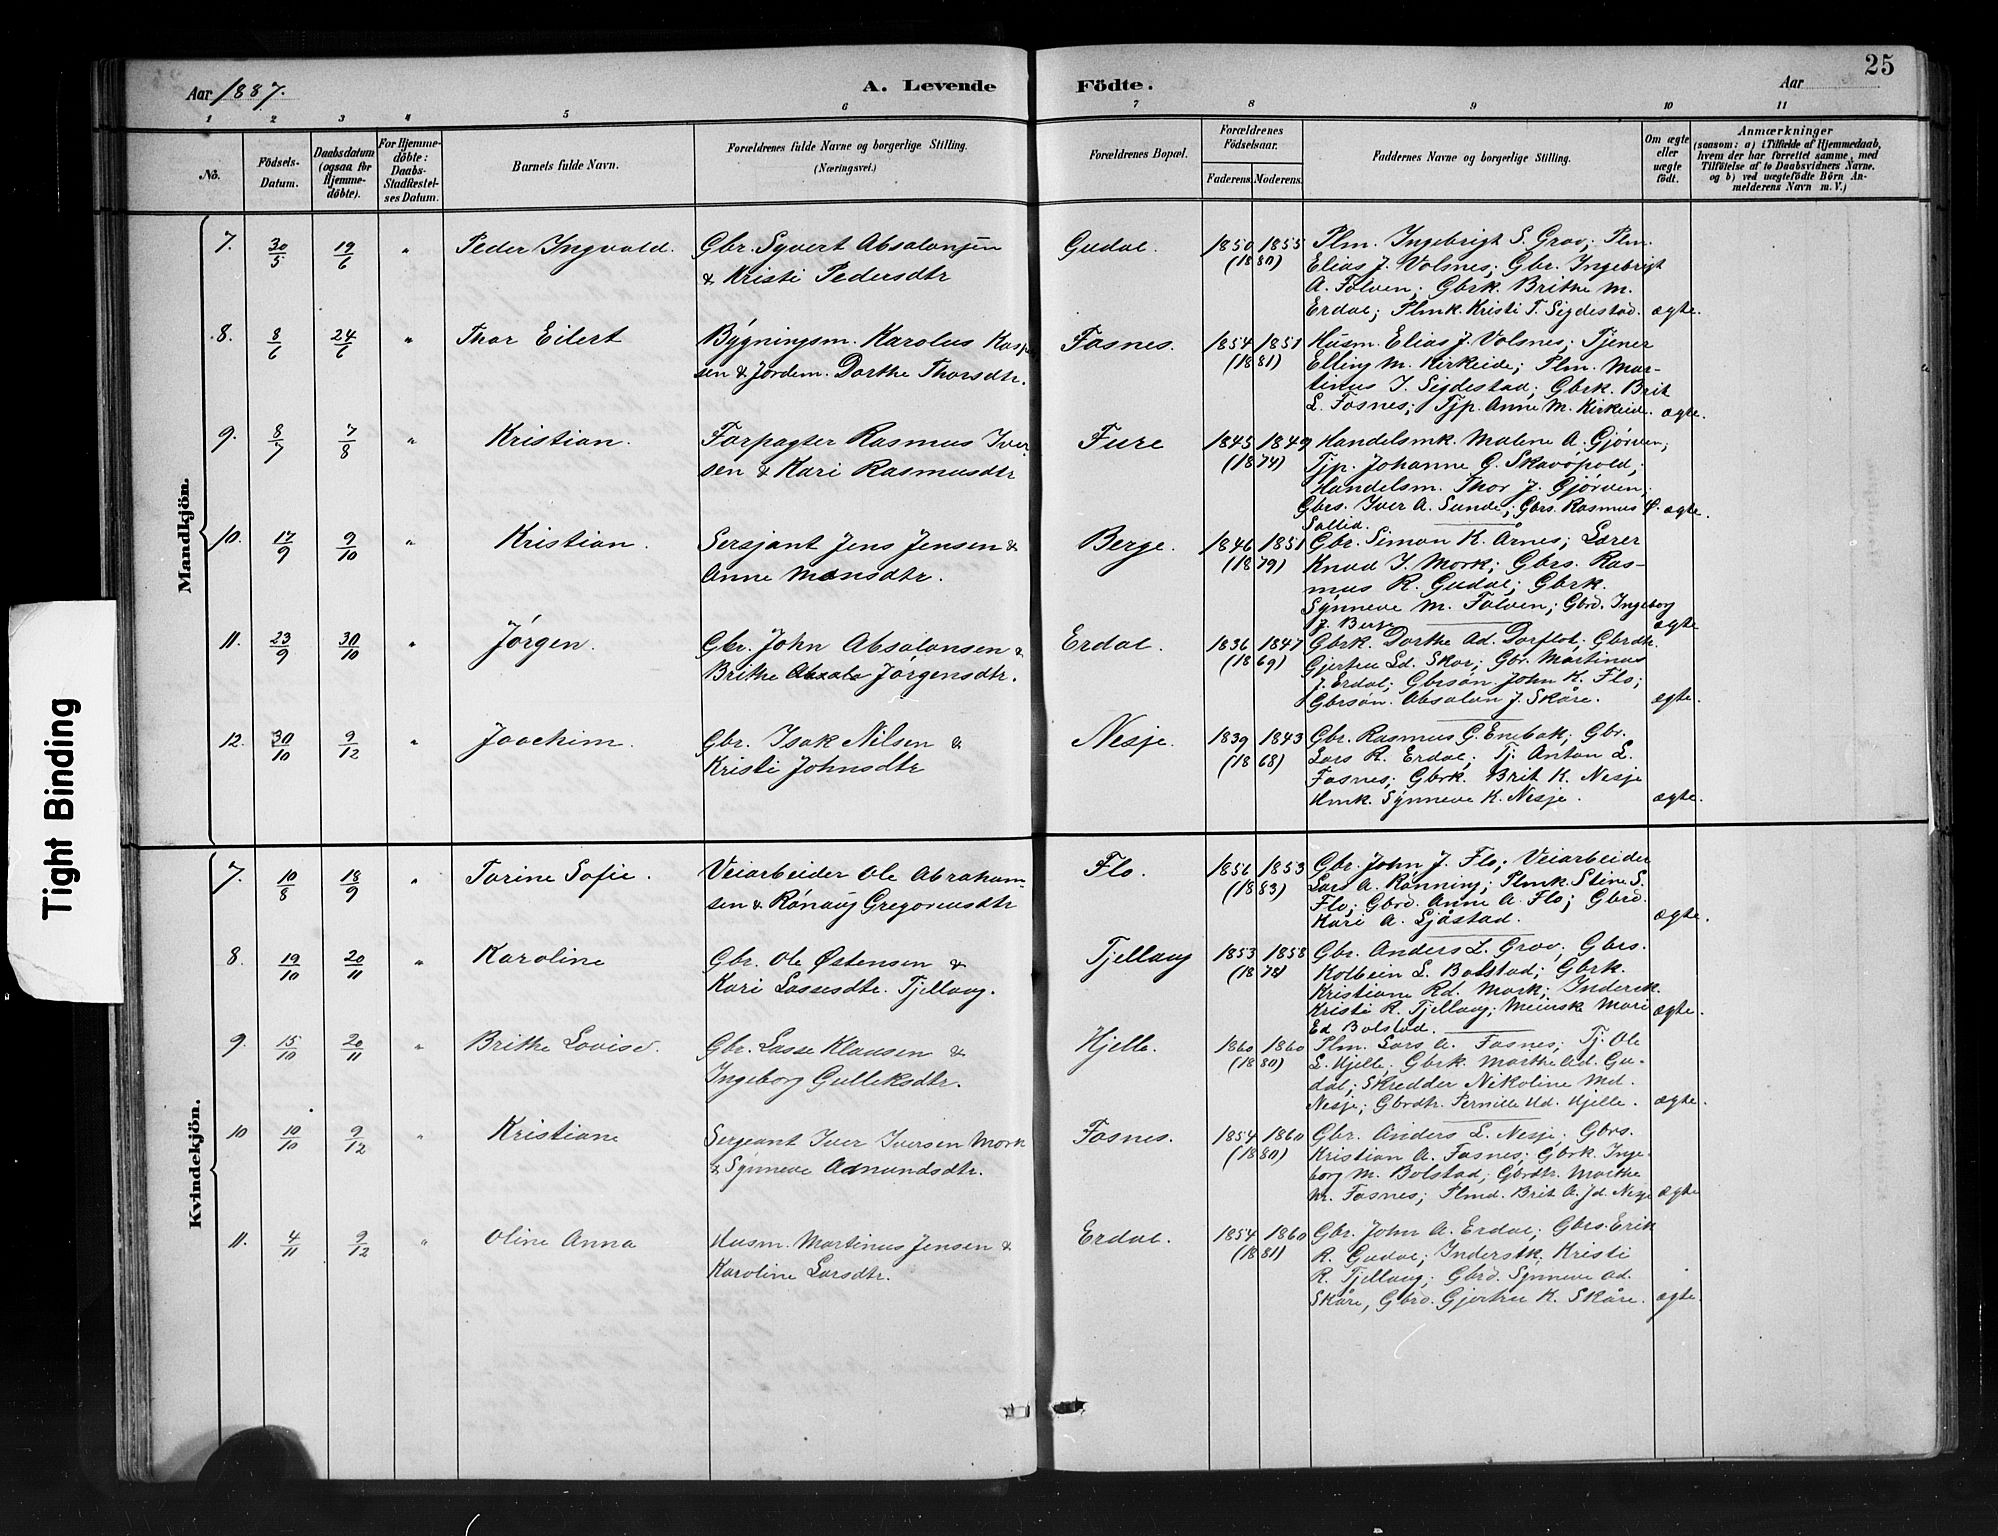 25
Aar 1887.
A. Levende
Födte.
Aar
1 2 3 4 5 6 7 8 9 10 11
No.
Födsels-
Datum.
Daabsdatum
(ogsaa for
Hjemme-
döbte).
For Hjemme-
döbte:
Daabs-
Stadfæstel-
ses Datum.
Barnets fulde Navn.
Forældrenes fulde Navne og borgerlige Stilling.
(Næringsvei.)
Forældrenes Bopæl.
Forældrenes
Födselsaar.
Faderens. Moderens.
Faddernes Navne og borgerlige Stilling.
Om ægte
eller
uægte
födt.
Anmærkninger
(saasom: a) i Tilfælde af Hjemmedaab,
hvem der har forrettet samme, med
Tilföielse af to Daabsvidners Navne.
og b) ved uægtefödte Börn An-
melderens Navn m. V.)
Mandkjön.
7. 30/5 19/6 " Peder Ingvald. Gbr. Syvert Absalonsen
& Kristi Pedersdtr
Gudal. 1850 1855
(1880)
Plm. Ingebrigt S. Grov; Plm.
Elias J. Volsnes; Gbr. Ingebrigt
A. Folven; Gbrk. Brithe M.
Erdal; Plmk. Kristi T. Sigdestad. ægte.
8. 8/6 24/6 " Thor Eilert Bygningsm. Karolus Kasp
sen & Jordem. Dorthe Thorsdtr.
Fosnes. 1854 1851
(1881)
Husm. Elias J. Volsnes; Tjener
Elling M. Kirkeide; Plm. Mar-
tinus I. Sigdestad; Gbrk. Brit
L. Fosnes; Tjp. Anne M. Kirkeide. ægte.
9. 8/7 7/8 " Kristian. Forpagter Rasmus Iver-
sen & Kari Rasmusdtr
Fure 1845 1849
(1874)
Handelsmk. Malene A. Gjörven;
Tjp. Johanne G. Skavöpold;
Handelsm. Thor J. Gjörven;
Gbrs. Iver A. Sunde; Gbrs. Rasmus Ø. ægte.
Sollid.
10. 17/9 9/10 " Kristian. Sersjant Jens Jensen &
Anne Monsdtr.
Berge. 1846 1851
(1879)
Gbr. Simon K. Årnes; Lærer
Knud I. Mork; Gbrs. Ras-
mus R. Gudal; Gbrk.
Synneve M. Folven; Gbrd. Ingeborg
J. Berge ægte
11. 23/9 30/10 " Jørgen. Gbr. John Absalonsen &
Brithe Absalo Jørgensdtr.
Erdal. 1836 1847
(1869)
Gbrk. Dorthe Ad. Dorflot; Gbrdtr.
Gjertru Ld. Skor; Gbr. Martinus
J. Erdal; Gbrsön. John K. Flo;
Gbrsön. Absalon J. Skåre. ægte.
12. 30/10 9/12 " Joachim. Gbr. Isak Nilsen &
Kristi Johnsdtr
Nesje. 1839 1843
(1868)
Gbr. Rasmus G. Enebak; Gbr.
Lars R. Erdal; Tj. Anton L.
Fosnes; Gbrk. Brit K. Nesje
Hmk. Synneve K. Nesje. ægte.
Kvindekjön.
7. 10/8 18/9 " Torine Sofie. Veiarbeider Ole Abraham-
sen & Rønaug Gregoriusdtr
Flo. 1856 1853
(1883)
Gbr. John J. Flo; Veiarbeider
Lars A. Rönning; Plmk. Stine S.
Flo; Gbrd. Anne A. Flo; Gbrd.
Kari A. Sjåstad. ægte.
8. 19/10 20/11 " Karoline Gbr. Ole Østensen &
Kari Lassesdtr. Tjellaug.
Tjellaug 1853 1858
(1878)
Gbr. Anders L. Grov; Gbrs.
Kolbein L. Bolstad; Gbrk.
Kristiane Rd. Mork; Inderstk.
Kristi R. Tjellaug; Meiersk Mari
Ed Bolstad. ægte.
9. 15/10 20/11 " Brithe Lovise. Gbr. Lasse Klausen &
Ingeborg Gulleksdtr.
Hjelle. 1860 1860
(1880)
Plm. Lars A. Fosnes; Tj. Ole
L. Hjelle; Gbrk. Marthe Ad. Gu-
dal; Skredder Nikoline Md.
Nesje; Gbrdtr. Pernille Ud. Hjelle. ægte.
10 10/10 9/12 " Kristiane Sergeant Iver Iversen Mork
& Synneve Admundsdtr.
Fosnes. 1854 1860
(1880)
Gbr. Anders L. Nesje; Gbrs.
Kristian A. Fosnes; Gbrk. Inge-
borg M. Bolstad; Gbrdtr. Marthe
M. Fosnes; Plmd. Brit A. Jd. Nesje ægte
11. 4/11 9/12 " Oline Anna Husm. Martinus Jensen &
Karoline Larsdtr.
Erdal. 1854 1860
(1881)
Gbr. John A. Erdal; Gbrs. Erik
R. Gudal; Inderstk. Kristi
R. Tjellaug; Gbrd. Synneve Ad.
Skåre, Gbrd. Gjertru K. Skåre. ægte.
Tight Binding